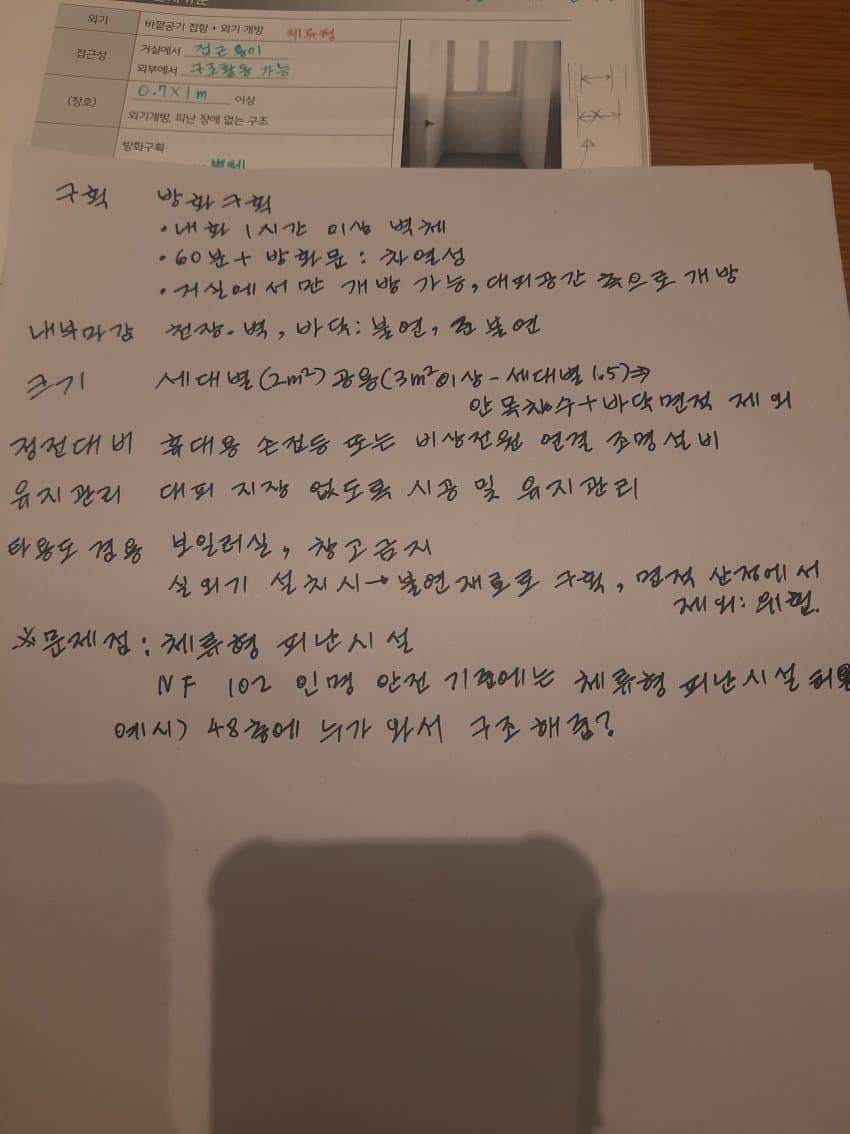 외기 바깥공기 접함 + 외기 개방 체류형
접근성 거실에서 접근 용이
외부에서 구조활동 가능
(창호) 0.7 X 1m 이상
외기개방, 피난 장애 없는 구조
방화구획
벽체
구획 방화구획
• 내화 1시간 이상 벽체
• 60분 + 방화문 : 차열성
• 거실에서만 개방 가능, 대피공간 쪽으로 개방
내부마감 천장. 벽, 바닥: 불연, 준불연
크기 세대별(2m²) 공용(3m²이상 - 세대별 1.5)⇒
안목치수 + 바닥면적 제외
정전대비 휴대용 손전등 또는 비상전원 연결 조명설비
유지관리 대피 지장 없도록 시공 및 유지관리
타용도 겸용 보일러실, 창고금지
실외기 설치시 → 불연재료로 구획, 면적 산정에서
제외: 위험.
※문제점 : 체류형 피난시설
NF 102 인명 안전 기준에는 체류형 피난시설
예시) 48층에 누가 와서 구조 해줌?